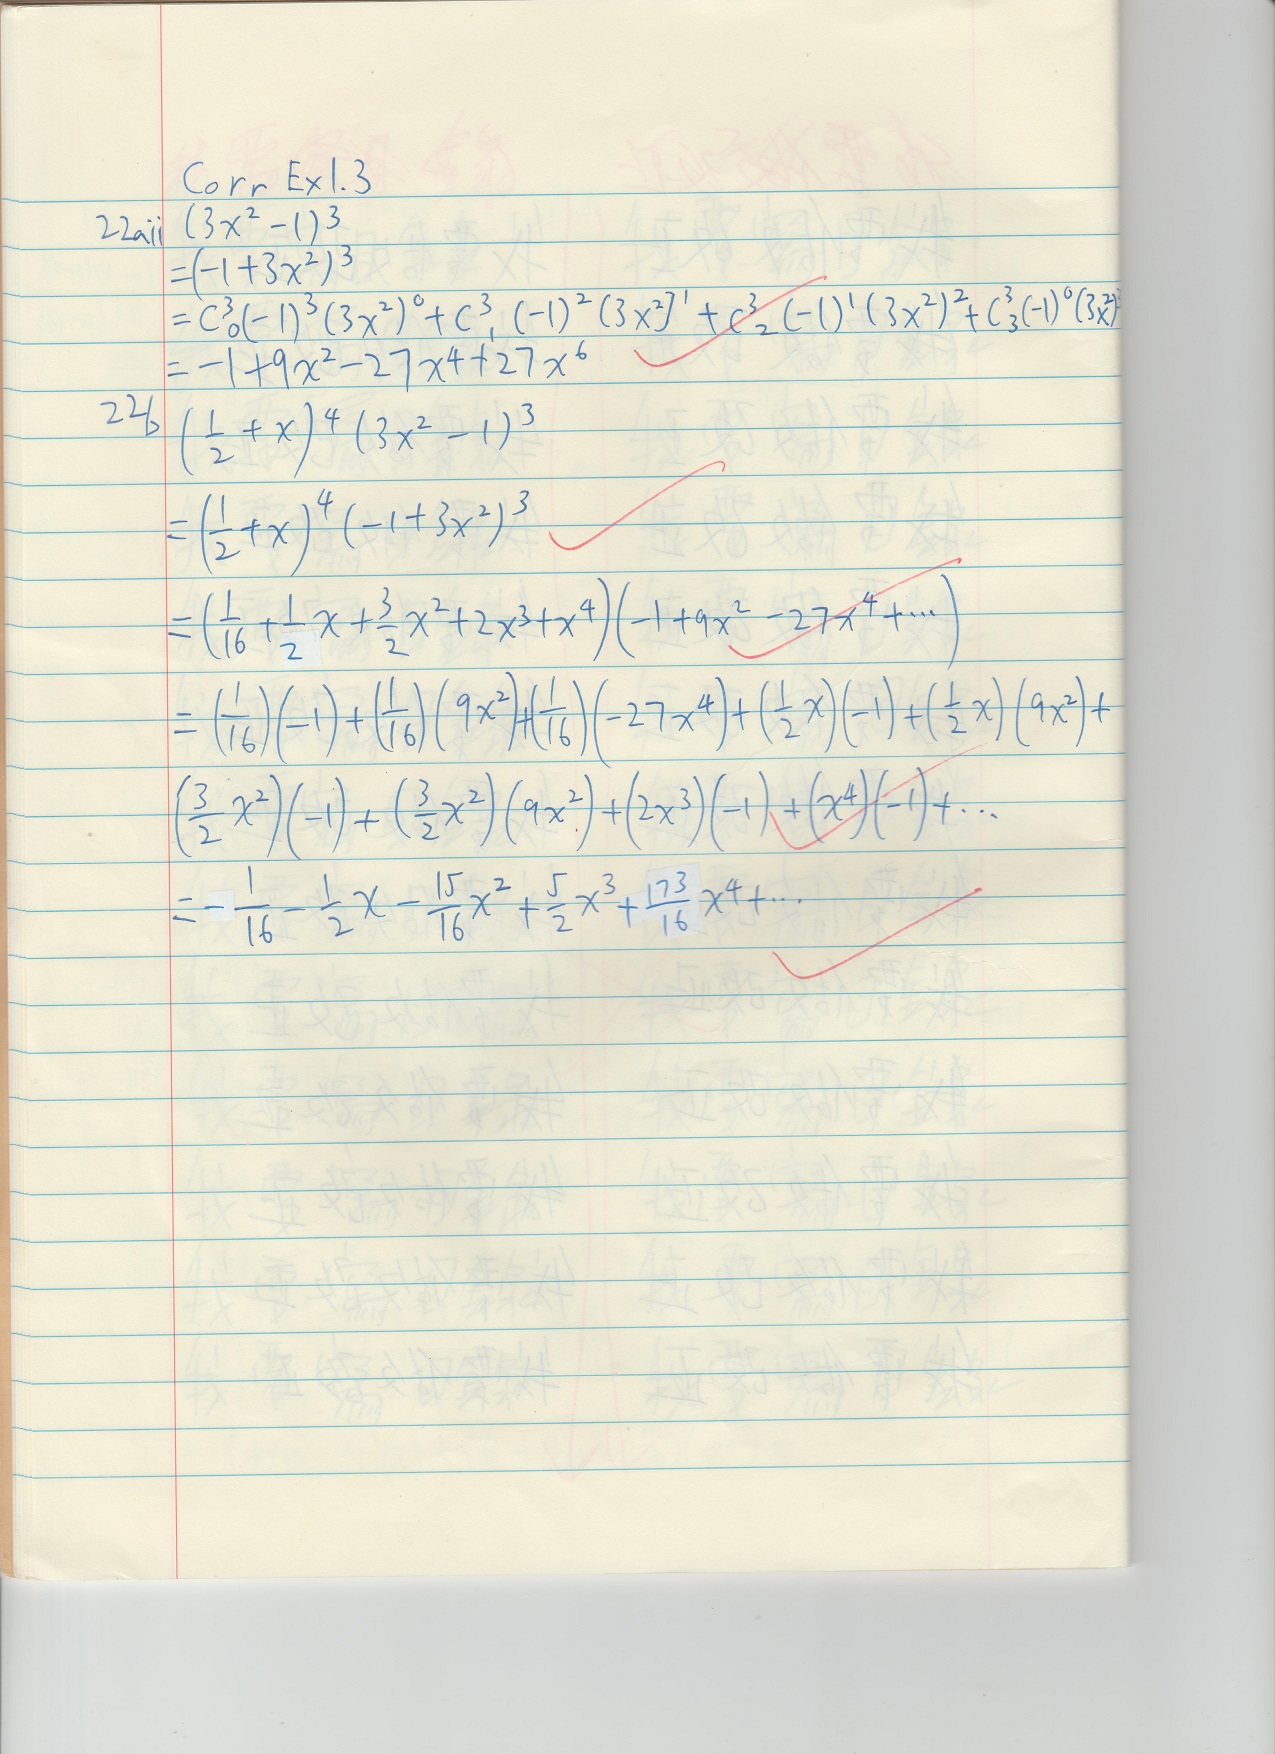 Corr Ex1.3
22aii (3x² - 1)³
= (-1 + 3x²)³
= C³₀(-1)³(3x²)⁰ + C³₁(-1)²(3x²)¹ + C³₂(-1)¹(3x²)² + C³₃(-1)⁰(3x²)³
= -1 + 9x² - 27x⁴ + 27x⁶
22b (1/2 + x)⁴ (3x² - 1)³
= (1/2 + x)⁴ (-1 + 3x²)³
= (1/16 + 1/2 x + 3/2 x² + 2x³ + x⁴)(-1 + 9x² - 27x⁴ + ...)
= (1/16)(-1) + (1/16)(9x²) + (1/16)(-27x⁴) + (1/2 x)(-1) + (1/2 x)(9x²) +
(3/2 x²)(-1) + (3/2 x²)(9x²) + (2x³)(-1) + (x⁴)(-1) + ...
= - 1/16 - 1/2 x - 15/16 x² + 5/2 x³ + 173/16 x⁴ + ...